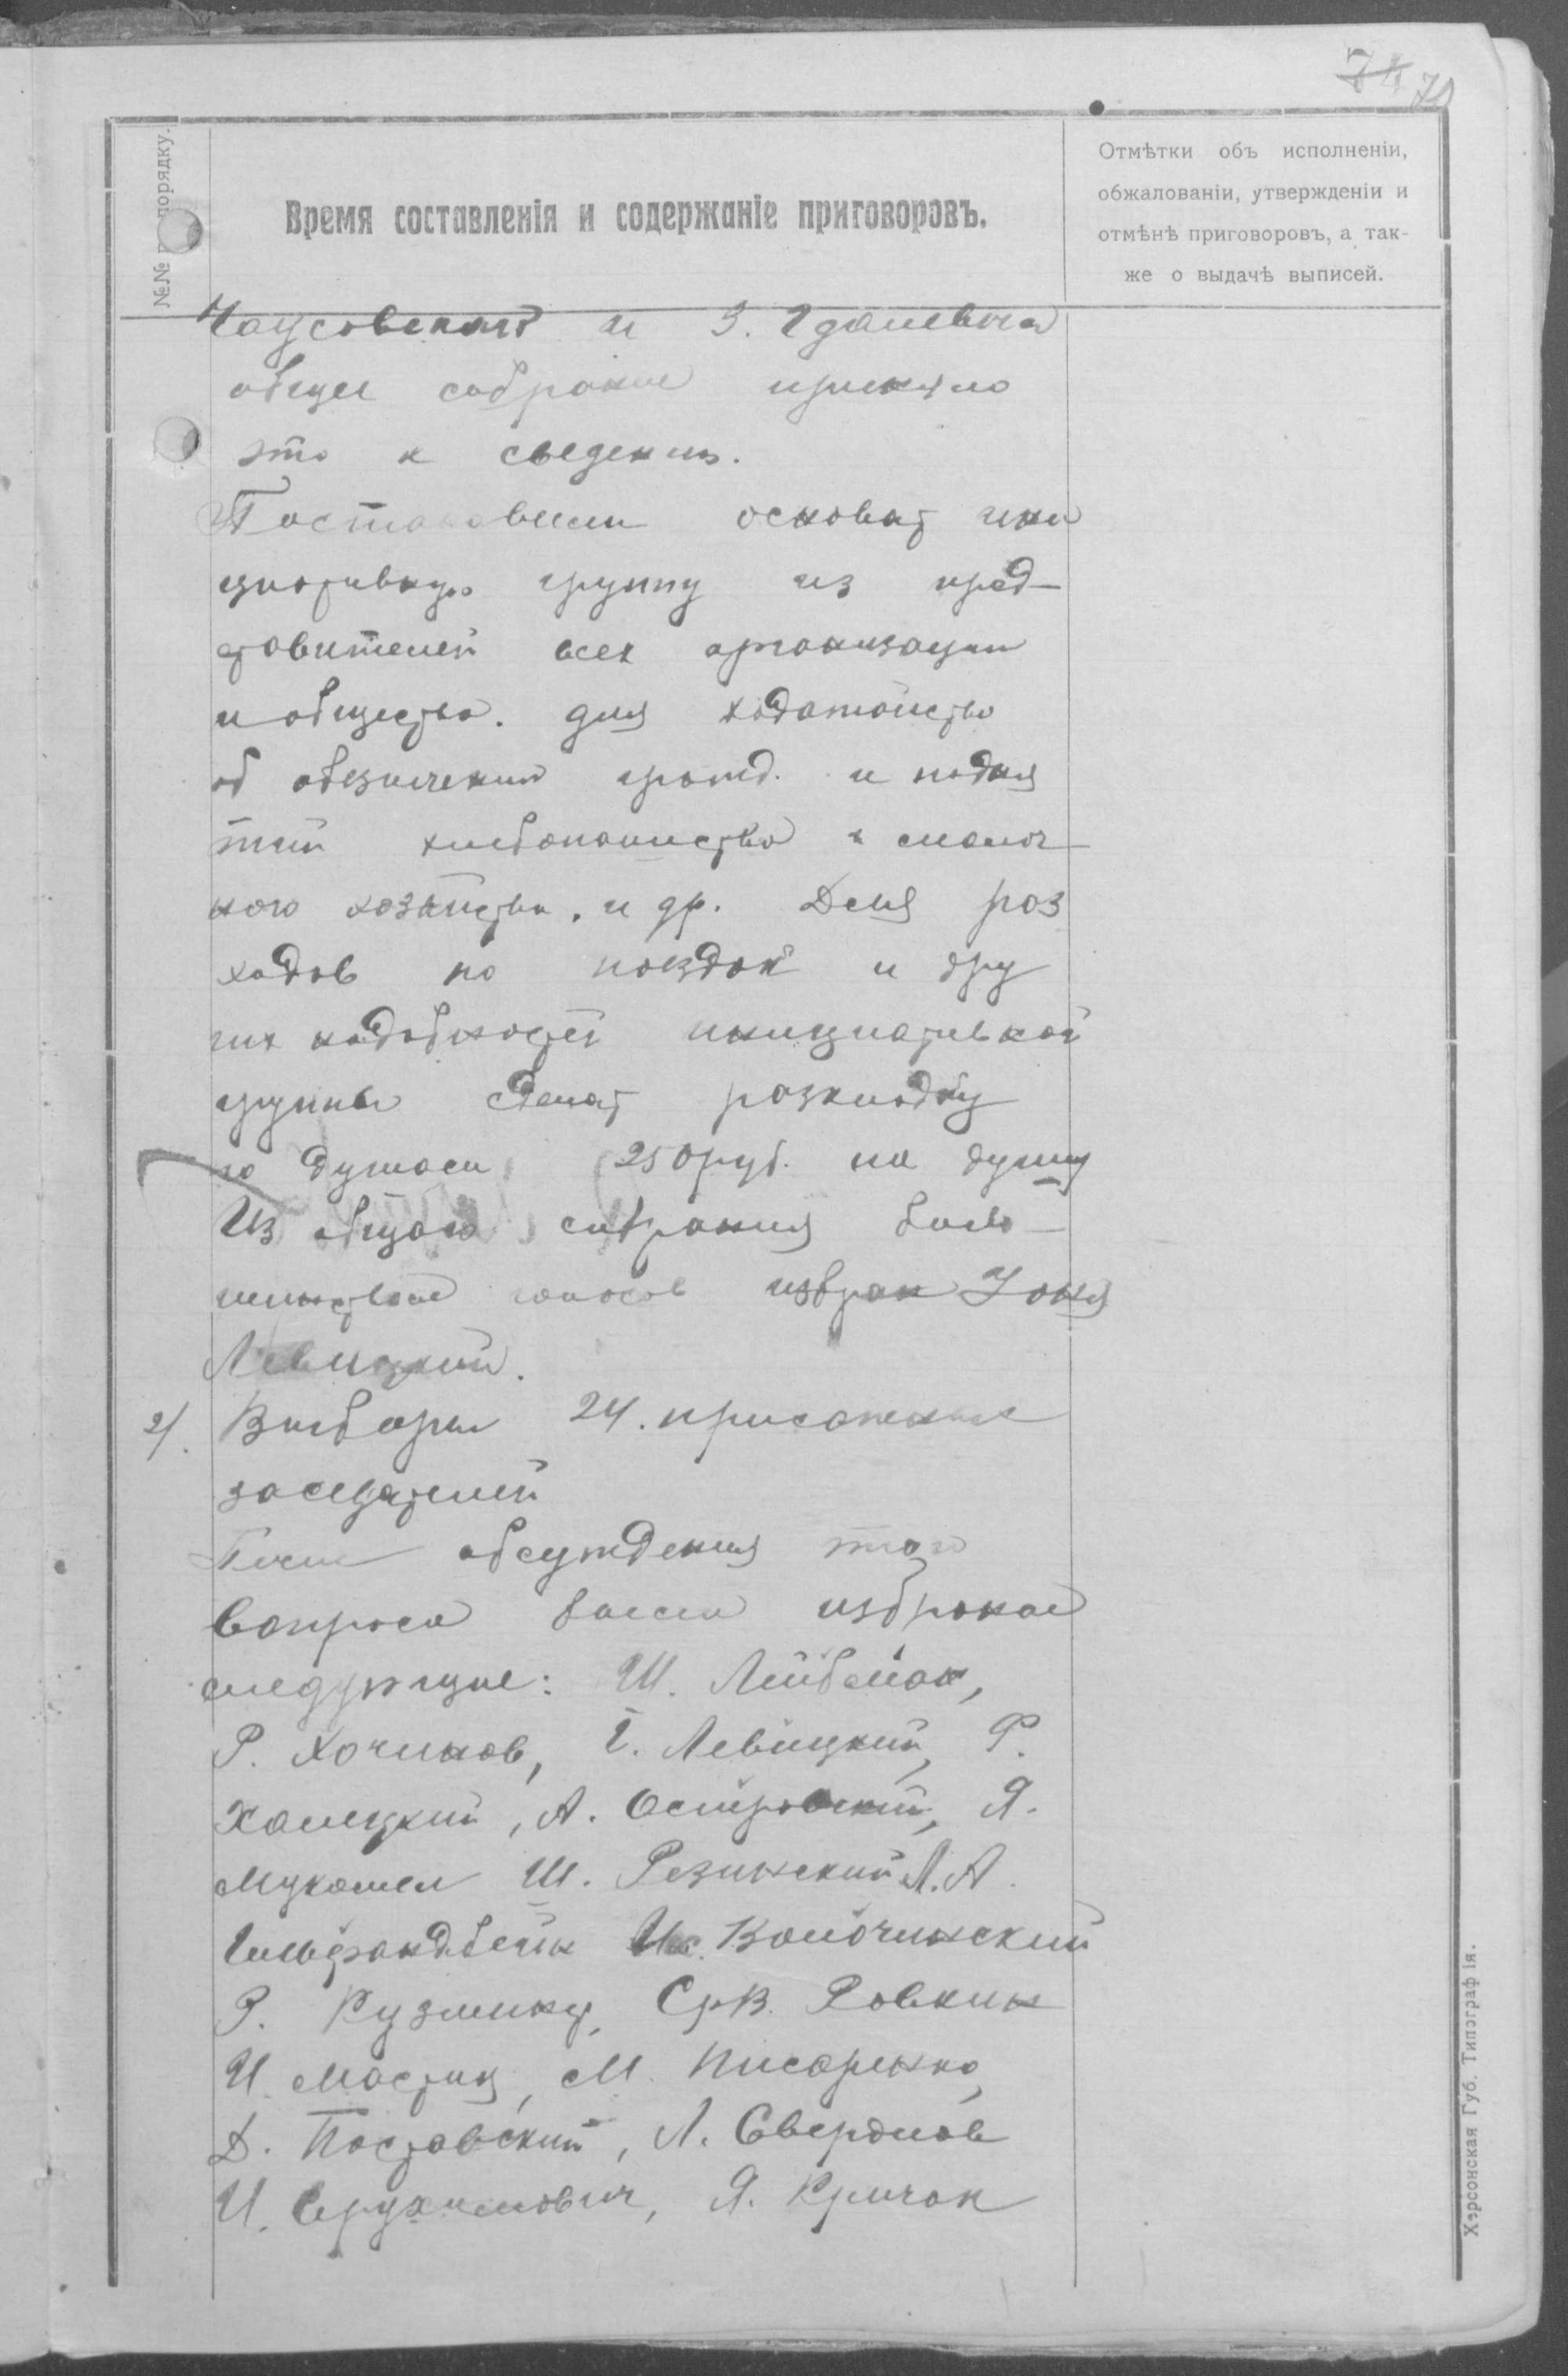 74 70
№№ по порядку.
Время составленія и содержаніе приговоровъ.
Отмѣтки объ исполненіи,
обжалованіи, утвержденіи и
отмѣнѣ приговоровъ, а так-
же о выдачѣ выписей.
Чаусовская и З. Гдалевича
общее собрание приняло
это к сведению.
Постановили основат ини
циотивную группу из пред-
ставителей всех организации
и общество. для ходатойство
об обезпичении гражд. и подня
тий хлебопашество и
ного хозяйства. и др. Для роз
ходов по поездок и дру
гих надобностей инициативной
группы сделат розкладку
по душаси 250 руб. на душу
Из общаго собрания боль-
шинством голосов избран Іона
Левицкий.
2/. Выборы 24. присажных
заседателей
После обсуждения этого
вопроса были избраные
следующие: Ш. Лейбман,
Р. Хочинов, І. Левицкий, Р.
Халецкий, А. Островский, Я.
Мукомел Ш. Резинский Л. А.
Гильфандбейн Ис. Волочинский
Р. Кузминер, Срв. Ровкин
И. Мостик, М. Писаренко,
Д. Поставский, Л. Свердлов
И. Ерухимович, Я. Кричак
Херсонская Губ. Типографія.